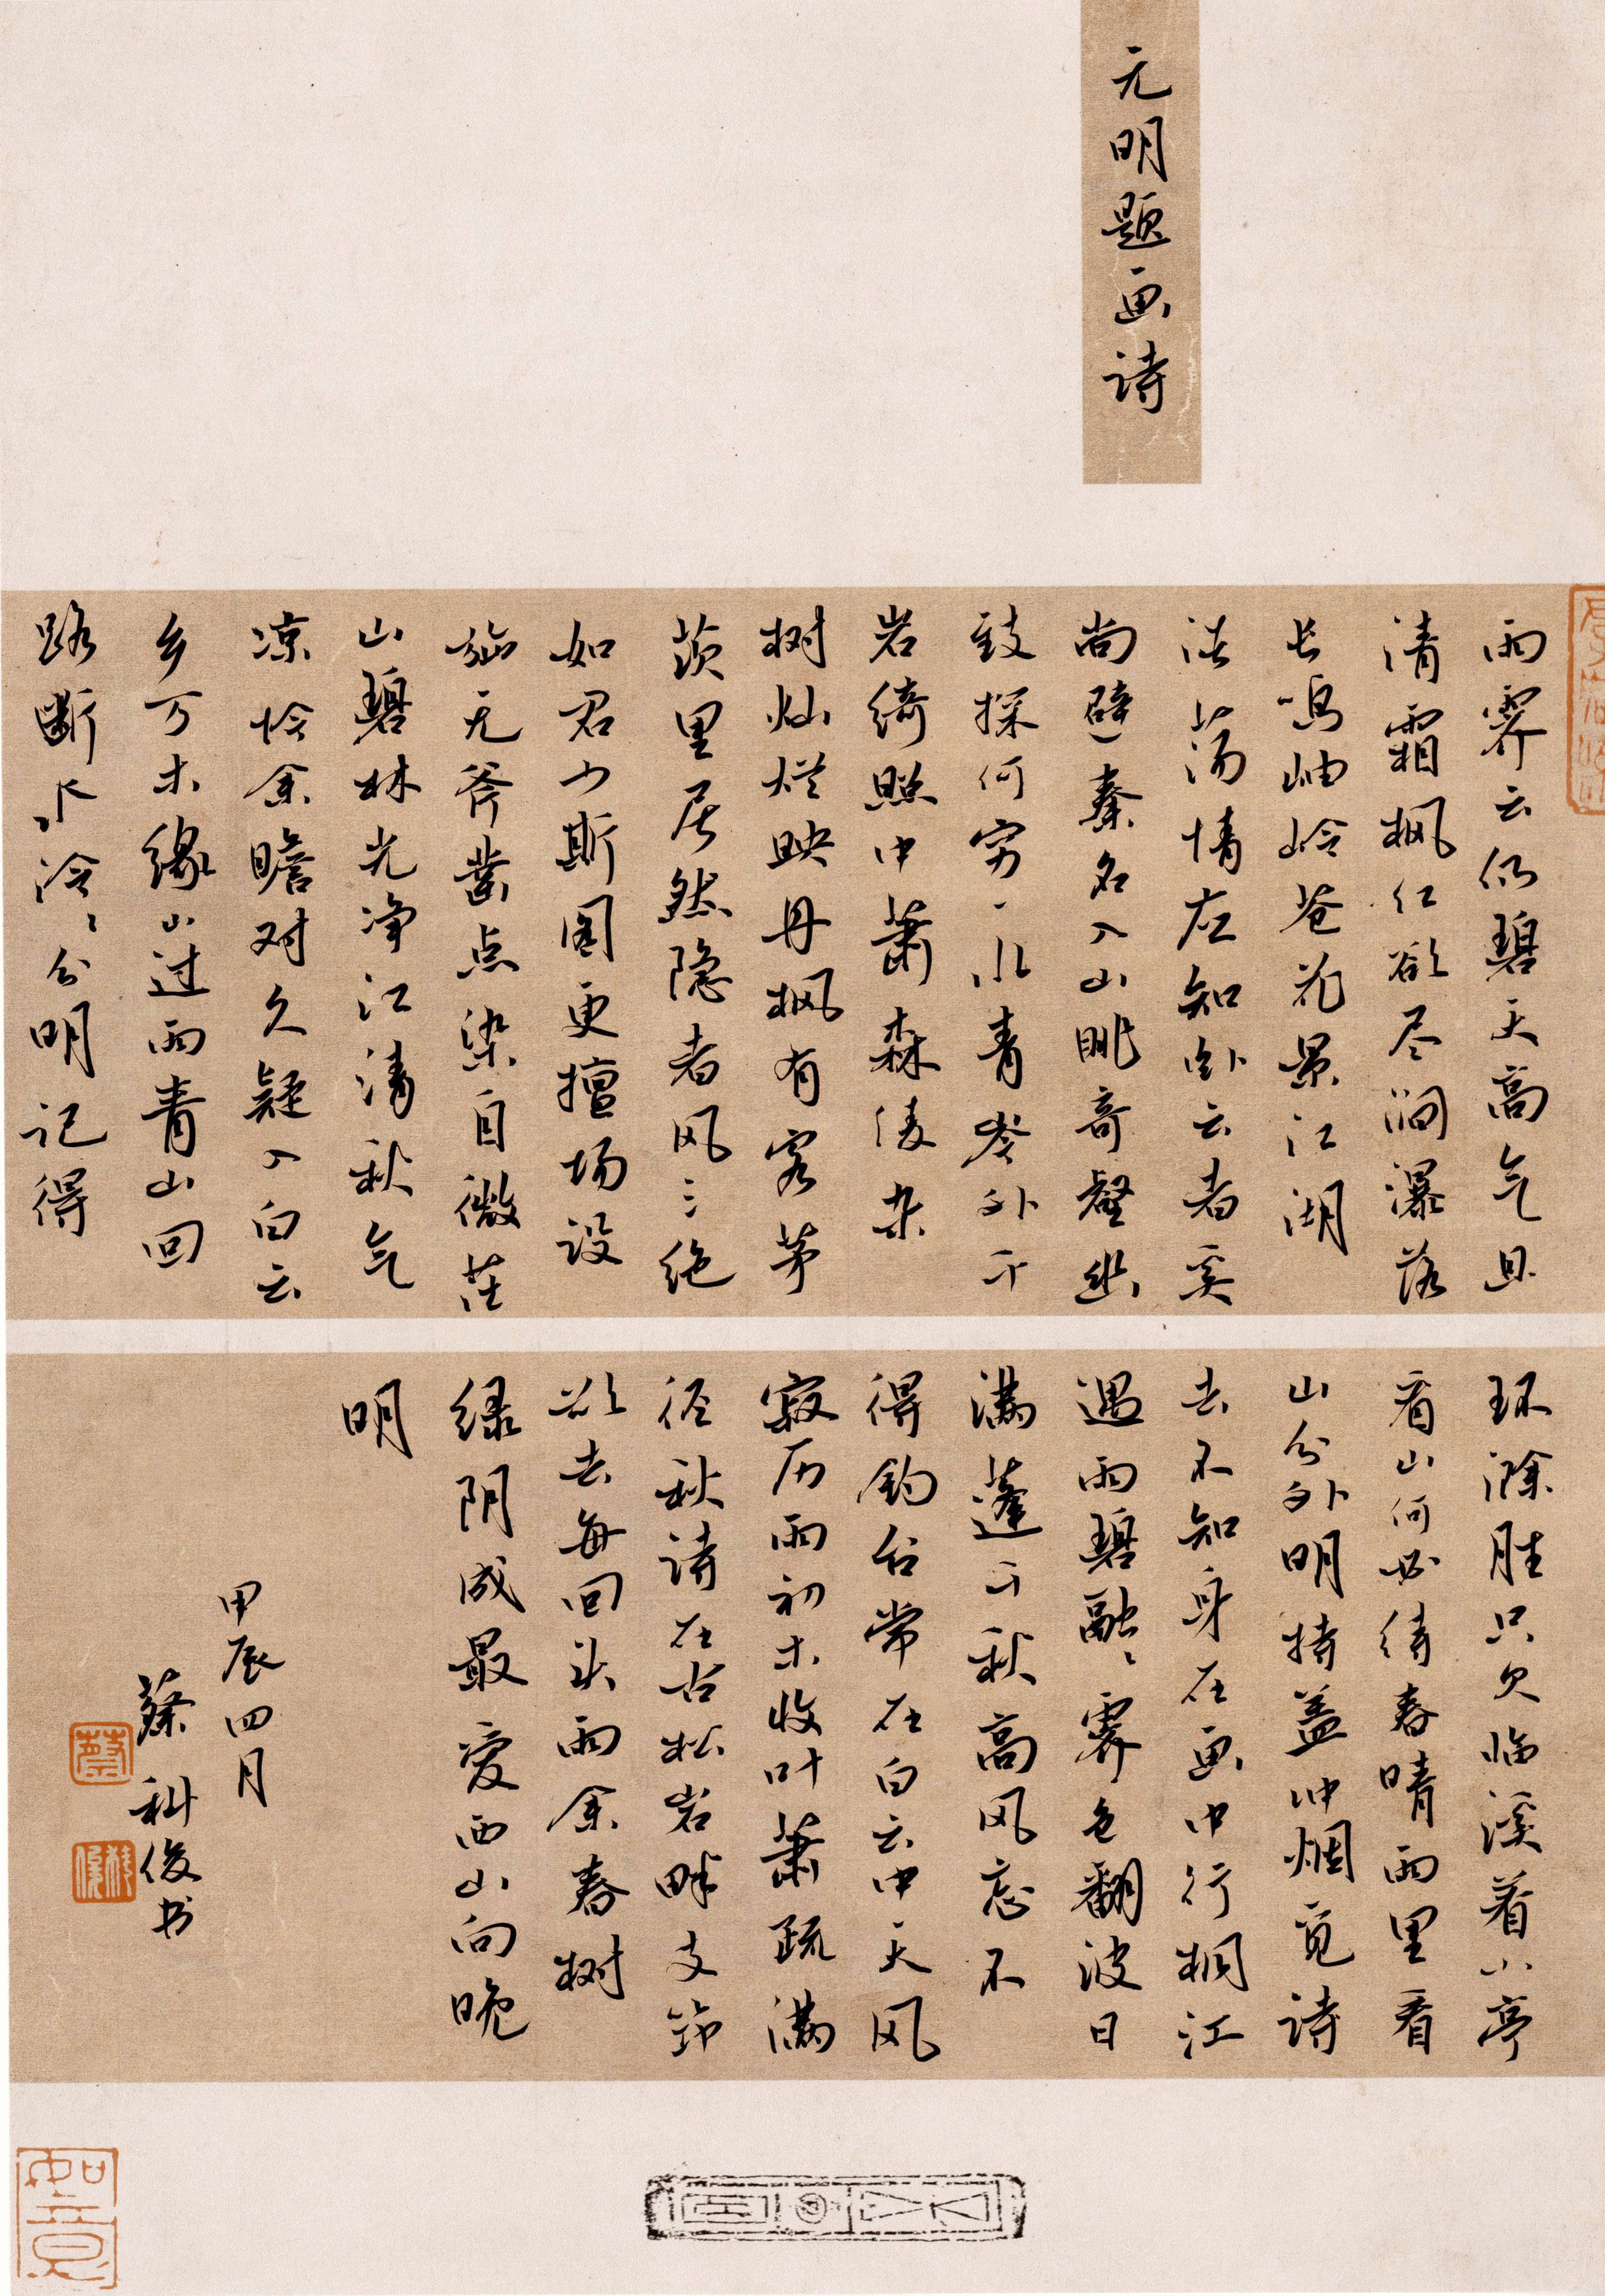 元明题画诗
雨霁云仍碧天高气且
清霜枫红欲尽涧瀑落
长鸣岫岭苍花景江湖
浩荡情应知卧云者奚
尚避秦名入山眺奇壑幽
致探何穷一水青岑外千
岩绮照中萧森凌杂
树灿烂映丹枫有客茅
茨里居然隐者风三绝
如君少斯图更擅场设
施无斧凿点染自微茫
山碧林光净江清秋气
凉怜余瞻对久疑入白云
乡万木缘山过雨青山回
路断水泠〻分明记得
环滁胜只欠临溪着小亭
看山何必待春晴雨里看
山分外明持盖冲烟觅诗
去不知身在画中行桐江
遇雨碧融〻霁色翻波日
满蓬千秋高风忘不
得钓台常在白云中天风
寂历雨初木收叶萧疏满
径秋诗在古松岩畔支筇
欲去每回头雨余春树
绿阴成最爱西山向晚
明
甲辰四月
蔡科俊书
蔡
科俊
如意